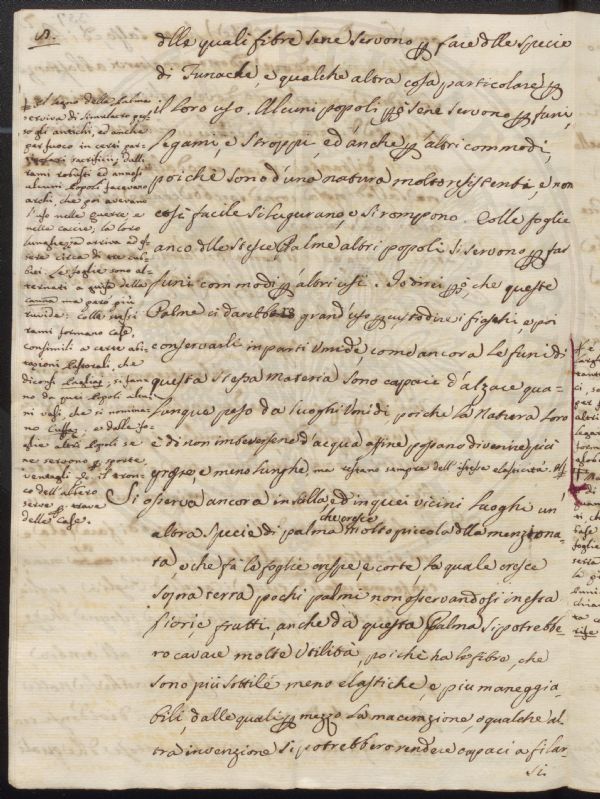 8.
delle quali fibre se ne servono per fare delle specie
di Funache, e qualche altra cosa particolare per
il loro uso. Alcuni popoli, però se ne servono per funi,
legami, e Stroppi, ed anche per altri commodi,
poiche sono d'una natura molto resistente, e non
così facile si logorano, e si rompono. Colle foglie
anco delle stesse Palme altri popoli si servono per far
funi commodi per altri usi. Io direi però, che queste
Palme ci darebbero grand'uso per custodire i fiaschi, e poi
conservarli in parti Umide, come ancora le funi di
questa stessa materia sono capaci d'alzare qua-
lunque peso da luoghi Umidi, poiche la Natura loro
è di non imbeversene d'acqua affine possano divenire più
grosse, e meno lunghe, ma restano sempre dell'istessa elasticità.
Si osserva ancora in Sicilia ed in quei vicini luoghi un
altra Specie di palma che cresce molto piccola della menziona-
ta, e che fà le foglie crespe, e corte, la quale cresce
sopra terra pochi palmi non osservandosi in essa
fiori, e frutti, anche da questa Palma si potrebbe
ro cavare molte Utilità, poiche ha le fibre, che
sono più sottili e meno elastiche, e più maneggia-
bili, dalle quali per mezzo la macerazione, o qualche al-
tra invenzione si potrebbero rendere capaci a filar-
si.
Il legno della Palma
serviva di Simulacro pres-
so gli antichi, ed anche
per fuoco in certi par-
ticolari sacrificj; dalli
rami robusti ed annosi
alcuni Popoli facevano
archi, che poi avevano
l'uso nelle guerre, e
nelle caccie, la loro
lunghezza arriva ad es-
sere circa di tre cu-
biti. Le foglie sono al-
ternati a guisa della
canna ma però più
ruvide: colle nostri
rami formano case,
consimili a certe abi-
tazioni Pastorali, che
diconsi Pagliaj; si fan-
no da quei Popoli alcu-
ni vasi, che si nomina-
no Cuffas, e dalle fo-
glie altri Popoli se
ne servono per sporte,
ventagli &c. il tron-
co dell'albero
serve per trave
delle Case.